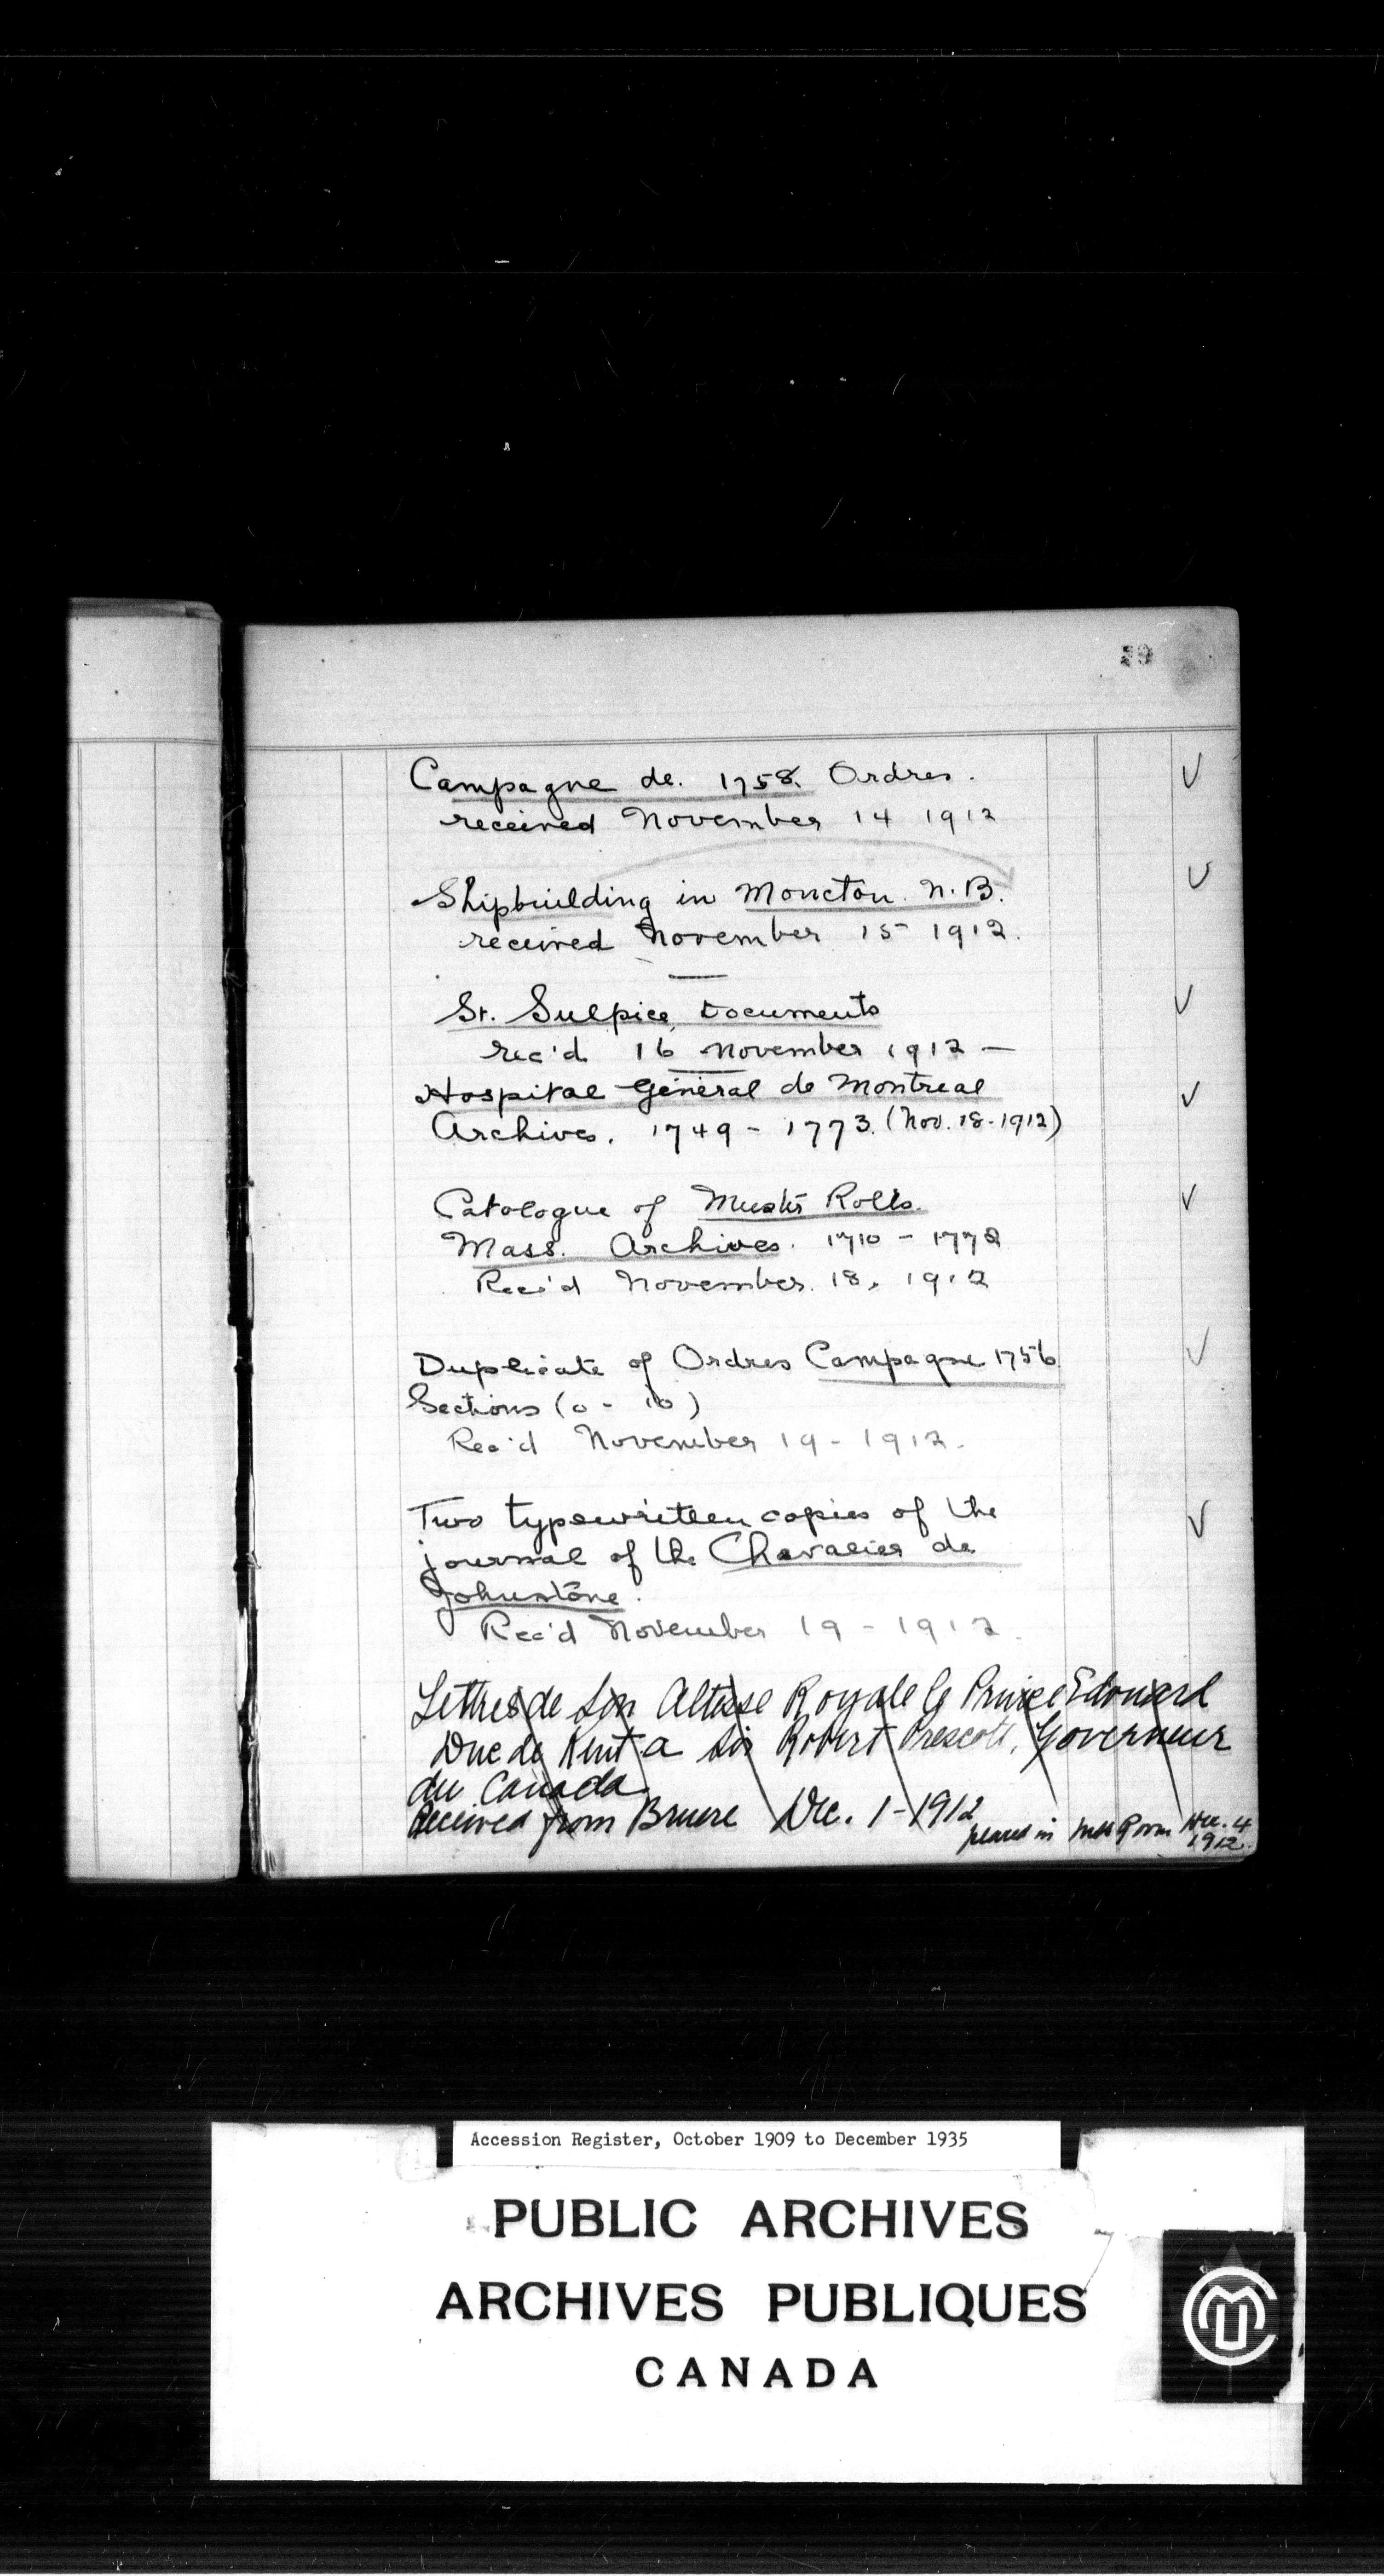 Campagne de. 1758. Ordres.
received November 14 1912
Shipbuilding in Moncton. N.B.
received November 15 1912.
St. Sulpice Documents
rec'd 16 November 1912 —
Hospital General de Montreal
Archives. 1749 - 1773. (Nov. 18 - 1912)
Catalogue of Muster Rolls.
Mass. Archives. 1710 - 1772
Rec'd November. 18, 1912
Duplicate of Ordres Campagne 1756
Sections (0 - 10)
Rec'd November 19 - 1912.
Two typewritten copies of the
journal of the Chevalier de
Johnstone.
Rec'd November 19 - 1912.
Lettres de Son Altesse Royale le Prince Edouard
Duc de Kent a Sir Robert Prescott, Governeur
du Canada.
Received from Bruere Dec. 1 - 1912
placed in mss Room Dec. 4
1912.
Accession Register, October 1909 to December 1935
PUBLIC ARCHIVES
ARCHIVES PUBLIQUES
CANADA